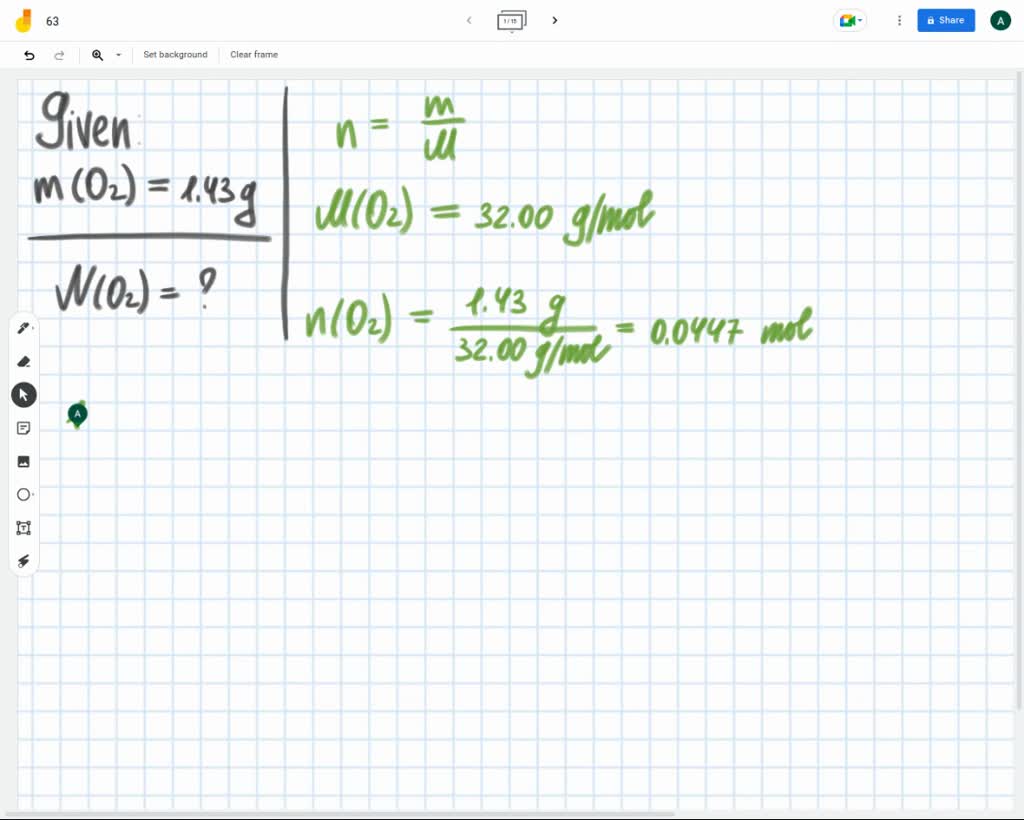 63
1/15
Share
A
Set background
Clear frame
Given:
m(O₂) = 1.43 g
N(O₂) = ?
n = m/M
M(O₂) = 32.00 g/mol
n(O₂) = 1.43 g / 32.00 g/mol = 0.0447 mol
A